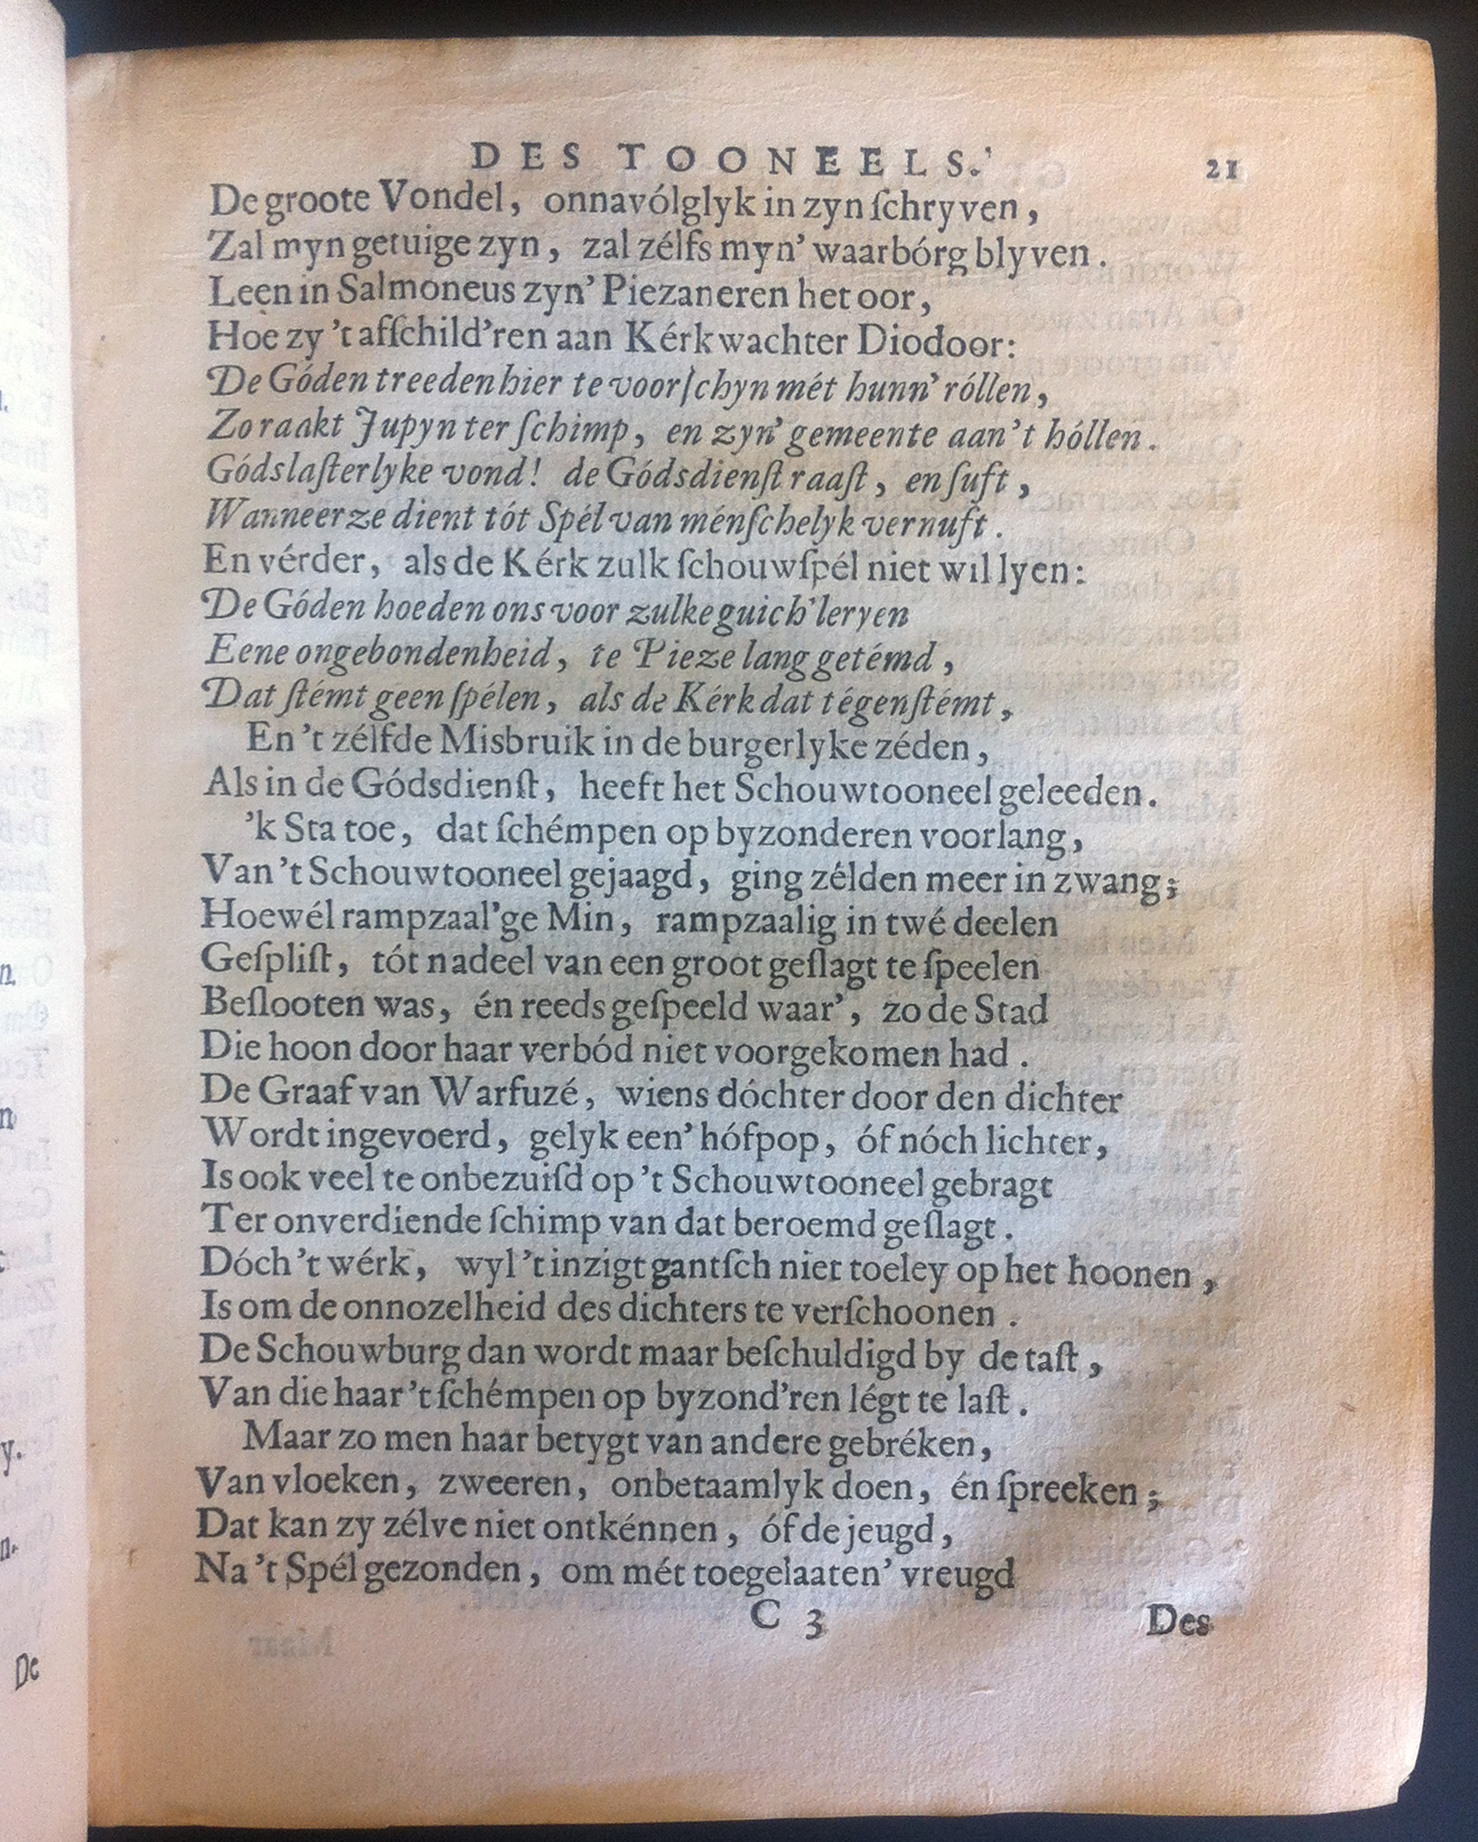 DES TOONEELS. 21
De groote Vondel, onnavólglyk in zyn ſchryven,
Zal myn getuige zyn, zal zélfs myn' waarbórg blyven.
Leen in Salmoneus zyn' Piezaneren het oor,
Hoe zy 't afſchild'ren aan Kérkwachter Diodoor:
De Góden treeden hier te voorſchyn mét hunn' róllen,
Zo raakt Jupyn ter ſchimp, en zyn' gemeente aan 't hóllen.
Gódslaſterlyke vond! de Gódsdienſt raaſt, en ſuft,
Wanneer ze dient tót Spél van ménſchelyk vernuft.
En vérder, als de Kérk zulk ſchouwſpél niet wil lyen:
De Góden hoeden ons voor zulke guich'leryen
Eene ongebondenheid, te Pieze lang getémd,
Dat ſtémt geen ſpélen, als de Kérk dat tégenſtémt,
En 't zélfde Misbruik in de burgerlyke zéden,
Als in de Gódsdienſt, heeft het Schouwtooneel geleeden.
'k Sta toe, dat ſchémpen op byzonderen voorlang,
Van 't Schouwtooneel gejaagd, ging zélden meer in zwang;
Hoewél rampzaal'ge Min, rampzaalig in twé deelen
Geſpliſt, tót nadeel van een groot geſlagt te ſpeelen
Beſlooten was, én reeds geſpeeld waar', zo de Stad
Die hoon door haar verbód niet voorgekomen had.
De Graaf van Warfuzé, wiens dóchter door den dichter
Wordt ingevoerd, gelyk een' hófpop, óf nóch lichter,
Is ook veel te onbezuiſd op 't Schouwtooneel gebragt
Ter onverdiende ſchimp van dat beroemd geſlagt.
Dóch 't wérk, wyl 't inzigt gantſch niet toeley op het hoonen,
Is om de onnozelheid des dichters te verſchoonen.
De Schouwburg dan wordt maar beſchuldigd by de taſt,
Van die haar 't ſchémpen op byzond'ren légt te laſt.
Maar zo men haar betygt van andere gebréken,
Van vloeken, zweeren, onbetaamlyk doen, én ſpreeken;
Dat kan zy zélve niet ontkénnen, óf de jeugd,
Na 't Spél gezonden, om mét toegelaaten' vreugd
C 3 Des
De